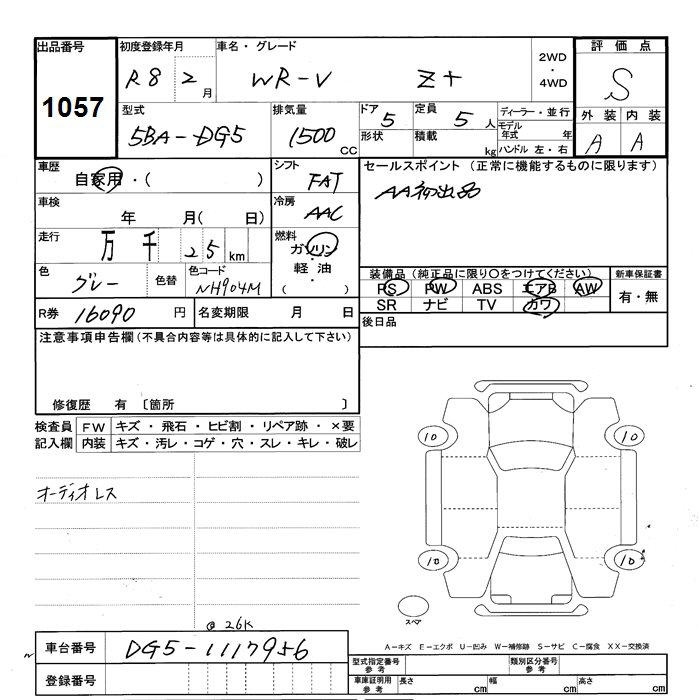 出品番号 1057
初度登録年月 R8 2 月
車名・グレード WR-V Z+
2WD・4WD
評価点 S
外装 A 内装 A
型式 5BA-DG5
排気量 1500 CC
ドア 5 形状
定員 5 人 積載 kg
ディーラー・並行
モデル年式 年
ハンドル 左・右
車歴 自家用・( )
シフト FAT
セールスポイント (正常に機能するものに限ります)
AA初出品
車検 年 月( 日)
冷房 AAC
走行 万 千 25 km
燃料 ガソリン・軽油・( )
色 グレー 色替
色コード NH904M
装備品 (純正品に限り○をつけてください)
PS PW ABS エアB AW
SR ナビ TV カワ
新車保証書 有・無
R券 16090 円
名変期限 月 日
後日品
注意事項申告欄(不具合内容等は具体的に記入して下さい)
修復歴 有 〔箇所 〕
検査員記入欄
FW キズ・飛石・ヒビ割・リペア跡・×要
内装 キズ・汚レ・コゲ・穴・スレ・キレ・破レ
オーディオレス
10 10
10 10
スペア
@ 26K
A-キズ E-エクボ U-凹み W-補修跡 S-サビ C-腐食 XX-交換済
車台番号 DG5-1117956
登録番号
型式指定番号 参考 類別区分番号 参考
車庫証明用 参考 長さ cm 幅 cm 高さ cm